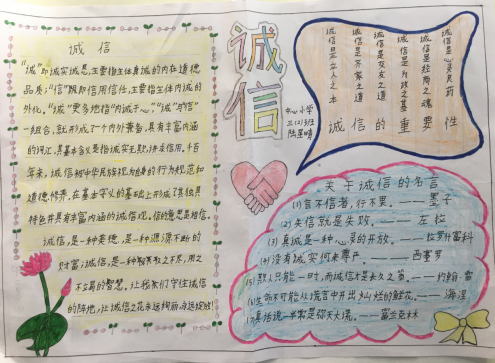 诚信
“诚”即诚实诚恳,主要指主体真诚的内在道德
品质;“信”即信用信任,主要指主体内诚的
外化。“诚”更多地指“内诚于心”,“诚”与“信”
一组合,就形成了一个内外兼备,具有丰富内涵
的词汇,其基本含义是指诚实无欺,讲求信用。千百
年来,诚信被中华民族视为自身的行为规范和
道德修养,在基本字义的基础上形成了其独具
特色并具有丰富内涵的诚信观。信的意思是相信。
诚信,是一种美德,是一种源源不断的
财富;诚信,是一种
不忘的智慧。让我们守住诚信
的阵地,让诚信之花永远绚丽,永远绽放!
诚信
中心小学
三(2)班
诚信是立人之本
诚信是齐家之道
诚信是交友之道
诚信是为政之基
诚信是经商之魂
诚信是心灵良药
诚信的重要性
关于诚信的名言
(1)言不信者,行不果。——墨子
(2)失信就是失败。——左拉
(3)真诚是一种心灵的开放。——拉罗什富科
(4)没有诚实何来尊严。——西塞罗
(5)欺人只能一时,而诚信才是长久之策。——约翰·雷
(6)生命不可能从谎言中开出灿烂的鲜花。——海涅
(7)真话说一半常是弥天大谎。——富兰克林